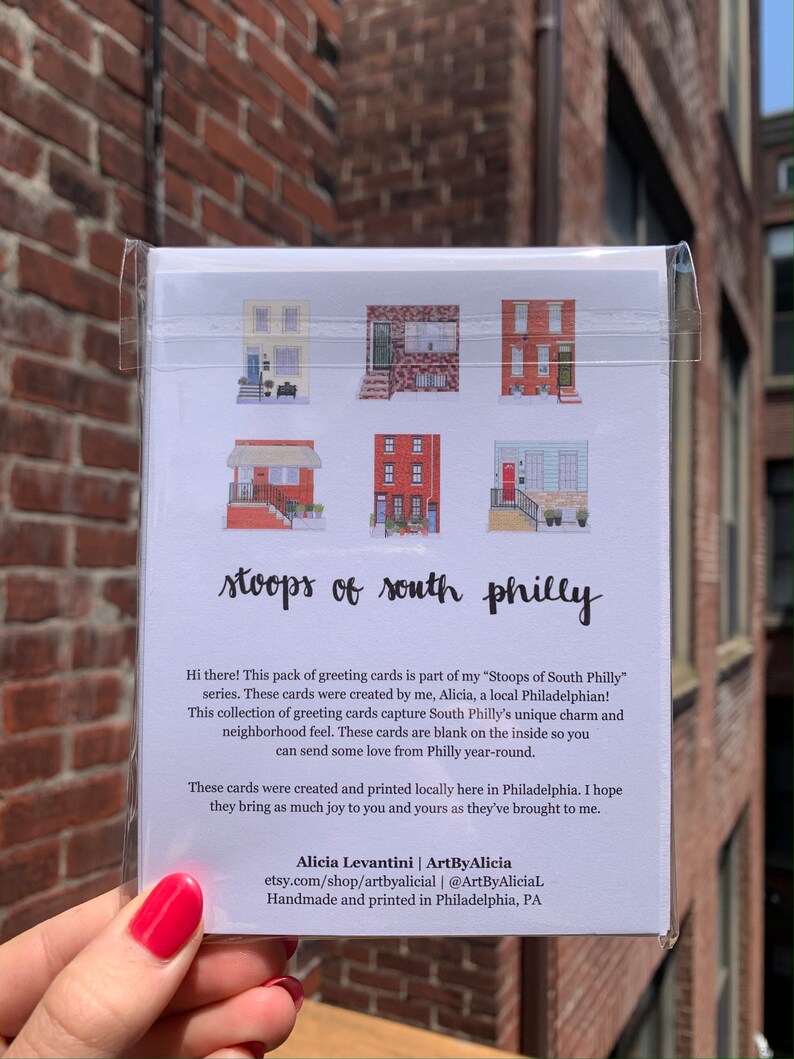 stoops of south philly
Hi there! This pack of greeting cards is part of my “Stoops of South Philly”
series. These cards were created by me, Alicia, a local Philadelphian!
This collection of greeting cards capture South Philly’s unique charm and
neighborhood feel. These cards are blank on the inside so you
can send some love from Philly year-round.
These cards were created and printed locally here in Philadelphia. I hope
they bring as much joy to you and yours as they’ve brought to me.
Alicia Levantini | ArtByAlicia
etsy.com/shop/artbyalicial | @ArtByAliciaL
Handmade and printed in Philadelphia, PA